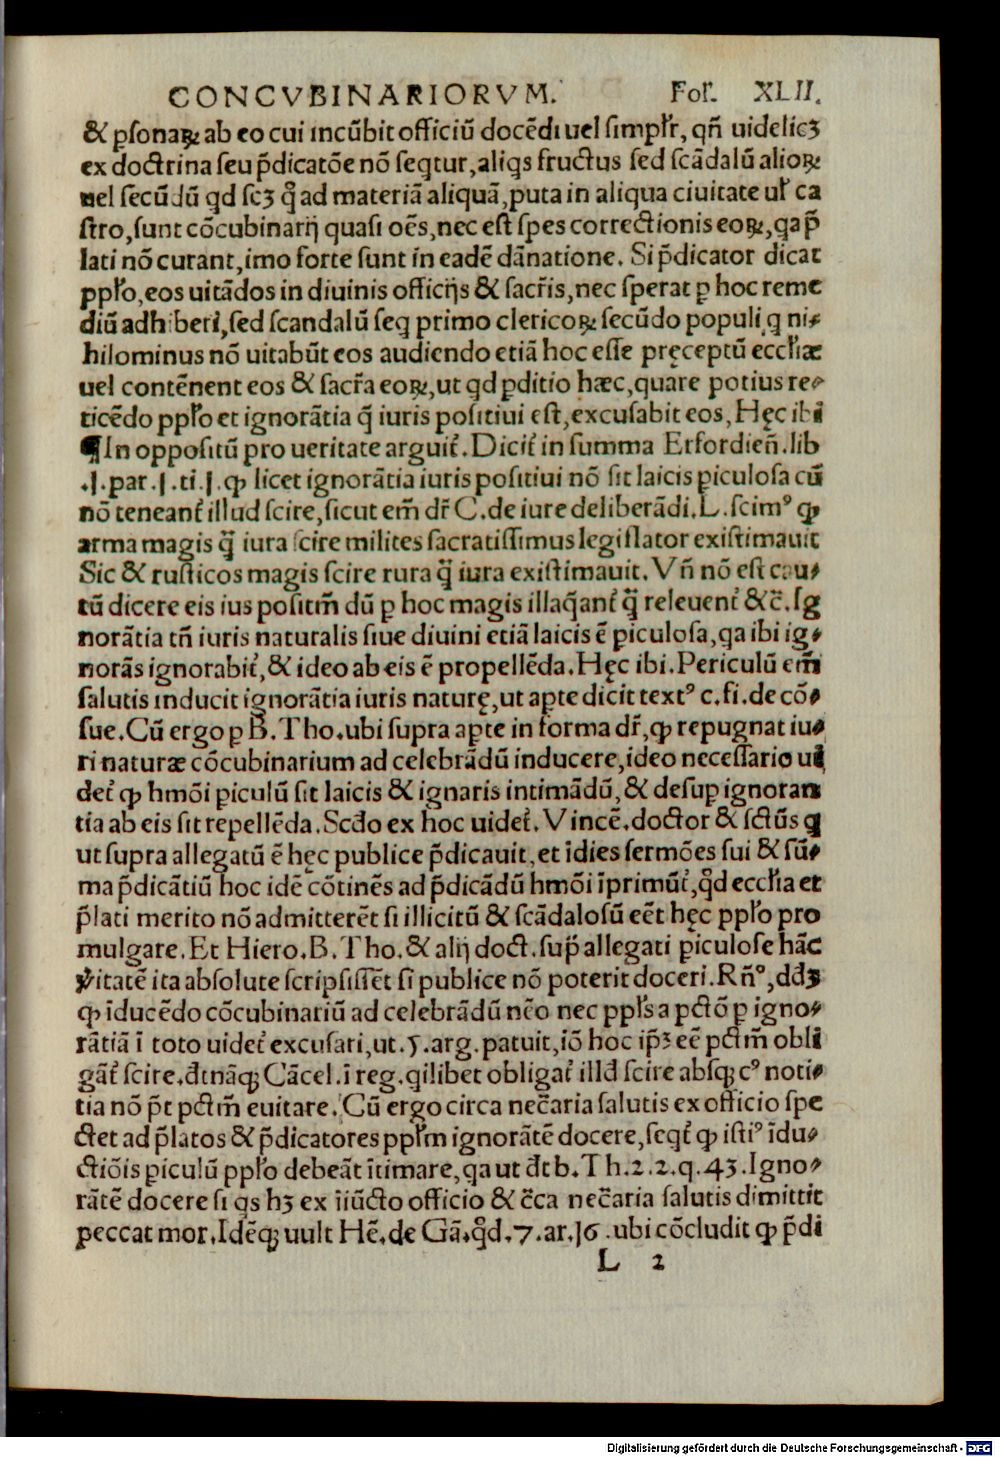 CONCVBINARIORVM. Fol. XLII.
& ꝑsonaꝝ ab eo cui incūbit officiū docēdi uel simplr̄, qn̄ uidelicꝫ
ex doctrina seu p̄dicatōe nō seqtur, aliqs fructus sed scādalū alioꝝ
uel secūdū qd scꝫ ꝗ̄ ad materiā aliquā, puta in aliqua ciuitate ul̄ ca
stro, sunt cōcubinarij quasi oēs, nec est spes correctionis eoꝝ, qa p̄
lati nō curant, imo forte sunt in eadē dānatione. Si p̄dicator dicat
pplo, eos uitādos in diuinis officijs & sacr̄is, nec sperat ꝑ hoc reme
diū adhiberi, sed scandalū seq primo clericoꝝ secūdo populi q ni-
hilominus nō uitabūt eos audiendo etiā hoc esse pręceptū eccl̄iæ
uel contēnent eos & sacr̄a eoꝝ, ut qd ꝑditio hæc, quare potius re-
ticēdo pplo et ignorātia q̄ iuris positiui est, excusabit eos, Hęc ibi
¶In oppositū pro ueritate arguit̄. Dicit̄ in summa Erfordien̄. lib
.j. par. j. ti. j. ꝙ licet ignorātia iuris positiui nō sit laicis ꝑiculosa cū
nō teneant̄ illud scire, sicut em̄ dr̄ C. de iure deliberādi. L. scimꝰ ꝙ
arma magis ꝗ̄ iura scire milites sacratissimus legislator existimauit
Sic & rusticos magis scire rura ꝗ̄ iura existimauit. Vn̄ nō est cau-
tū dicere eis ius positm̄ dū ꝑ hoc magis illaq̄ant̄ ꝗ̄ releuent̄ &c̄. Ig
norātia tn̄ iuris naturalis siue diuini etiā laicis ē ꝑiculosa, qa ibi ig-
norās ignorabit̄, & ideo ab eis ē propellēda. Hęc ibi. Periculū em̄
salutis inducit ignorātia iuris naturę, ut aꝑte dicit textꝰ c. fi. de cō-
sue. Cū ergo ꝑ B. Tho. ubi supra aꝑte in forma dr̄, ꝙ repugnat iu-
ri naturæ cōcubinarium ad celebrādū inducere, ideo necessario ui
det̄ ꝙ hmōi ꝑiculū sit laicis & ignaris intimādū, & desuꝑ ignoran
tia ab eis sit repellēda. Scd̄o ex hoc uidet̄. Vincē. doctor & sctūs q
ut supra allegatū ē hęc publice p̄dicauit, et īdies sermōes sui & sū-
ma p̄dicātiū hoc idē cōtinēs ad p̄dicādū hmōi īprimūt̄, qd̄ eccl̄ia et
p̄lati merito nō admitterēt si illicitū & scādalosū eēt hęc pplo pro
mulgare. Et Hiero. B. Tho. & alij doct. sup̄ allegati ꝑiculose hāc
v̄itatē ita absolute scripsissēt si publice nō poterit doceri. Rn̄ꝰ, dd̄ꝫ
ꝙ īducēdo cōcubinariū ad celebrādū nēo nec ppls a pctō ꝑ igno-
rātiā ī toto uidet̄ excusari, ut. 5. arg. patuit, iō hoc ip̄ꝫ eē pctm̄ obli
gāt̄ scire. dt̄nāqꝫ Cācel. ī reg. qilibet obligat̄ illd̄ scire absqꝫ cꝰ noti-
tia nō p̄t pctm̄ euitare. Cū ergo circa nec̄aria salutis ex officio spe
ctet ad p̄latos & p̄dicatores pplm̄ ignorātē docere, seqt̄ ꝙ istiꝰ īdu-
ctiōis ꝑiculū pplo debeāt ītimare, qa ut dt̄ b. Th. 2. 2. q. 43. Igno-
rātē docere si qs hꝫ ex īiūcto officio & c̄ca nec̄aria salutis dimittit
peccat mor. Idēqꝫ uult Hē. de Gā. qd̄. 7. ar. 16. ubi cōcludit ꝙ p̄di
L 2
Digitalisierung gefördert durch die Deutsche Forschungsgemeinschaft - DFG